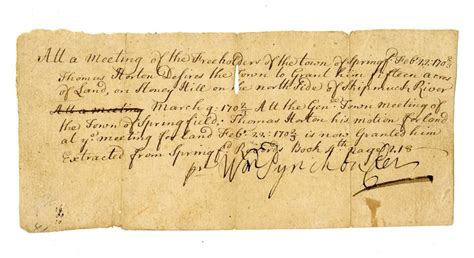 Att a meeting of the Freeholders of the town of Springfd Feb: 22: 170⅔
Thomas Horton Desires the Town to Grant him fifteen acres
of Land, on Stoney Hill on the north side of Skipmuck River
Att a meeting March 9: 170⅔ Att the Genll Town meeting of
the Town of Springfield: Thomas Horton his motion for land
at ye meeting for land Feb: 22: 170⅔ is now Granted him
Extracted from Springfd Records Book 4th page 218
pr Wm Pynchon Cler